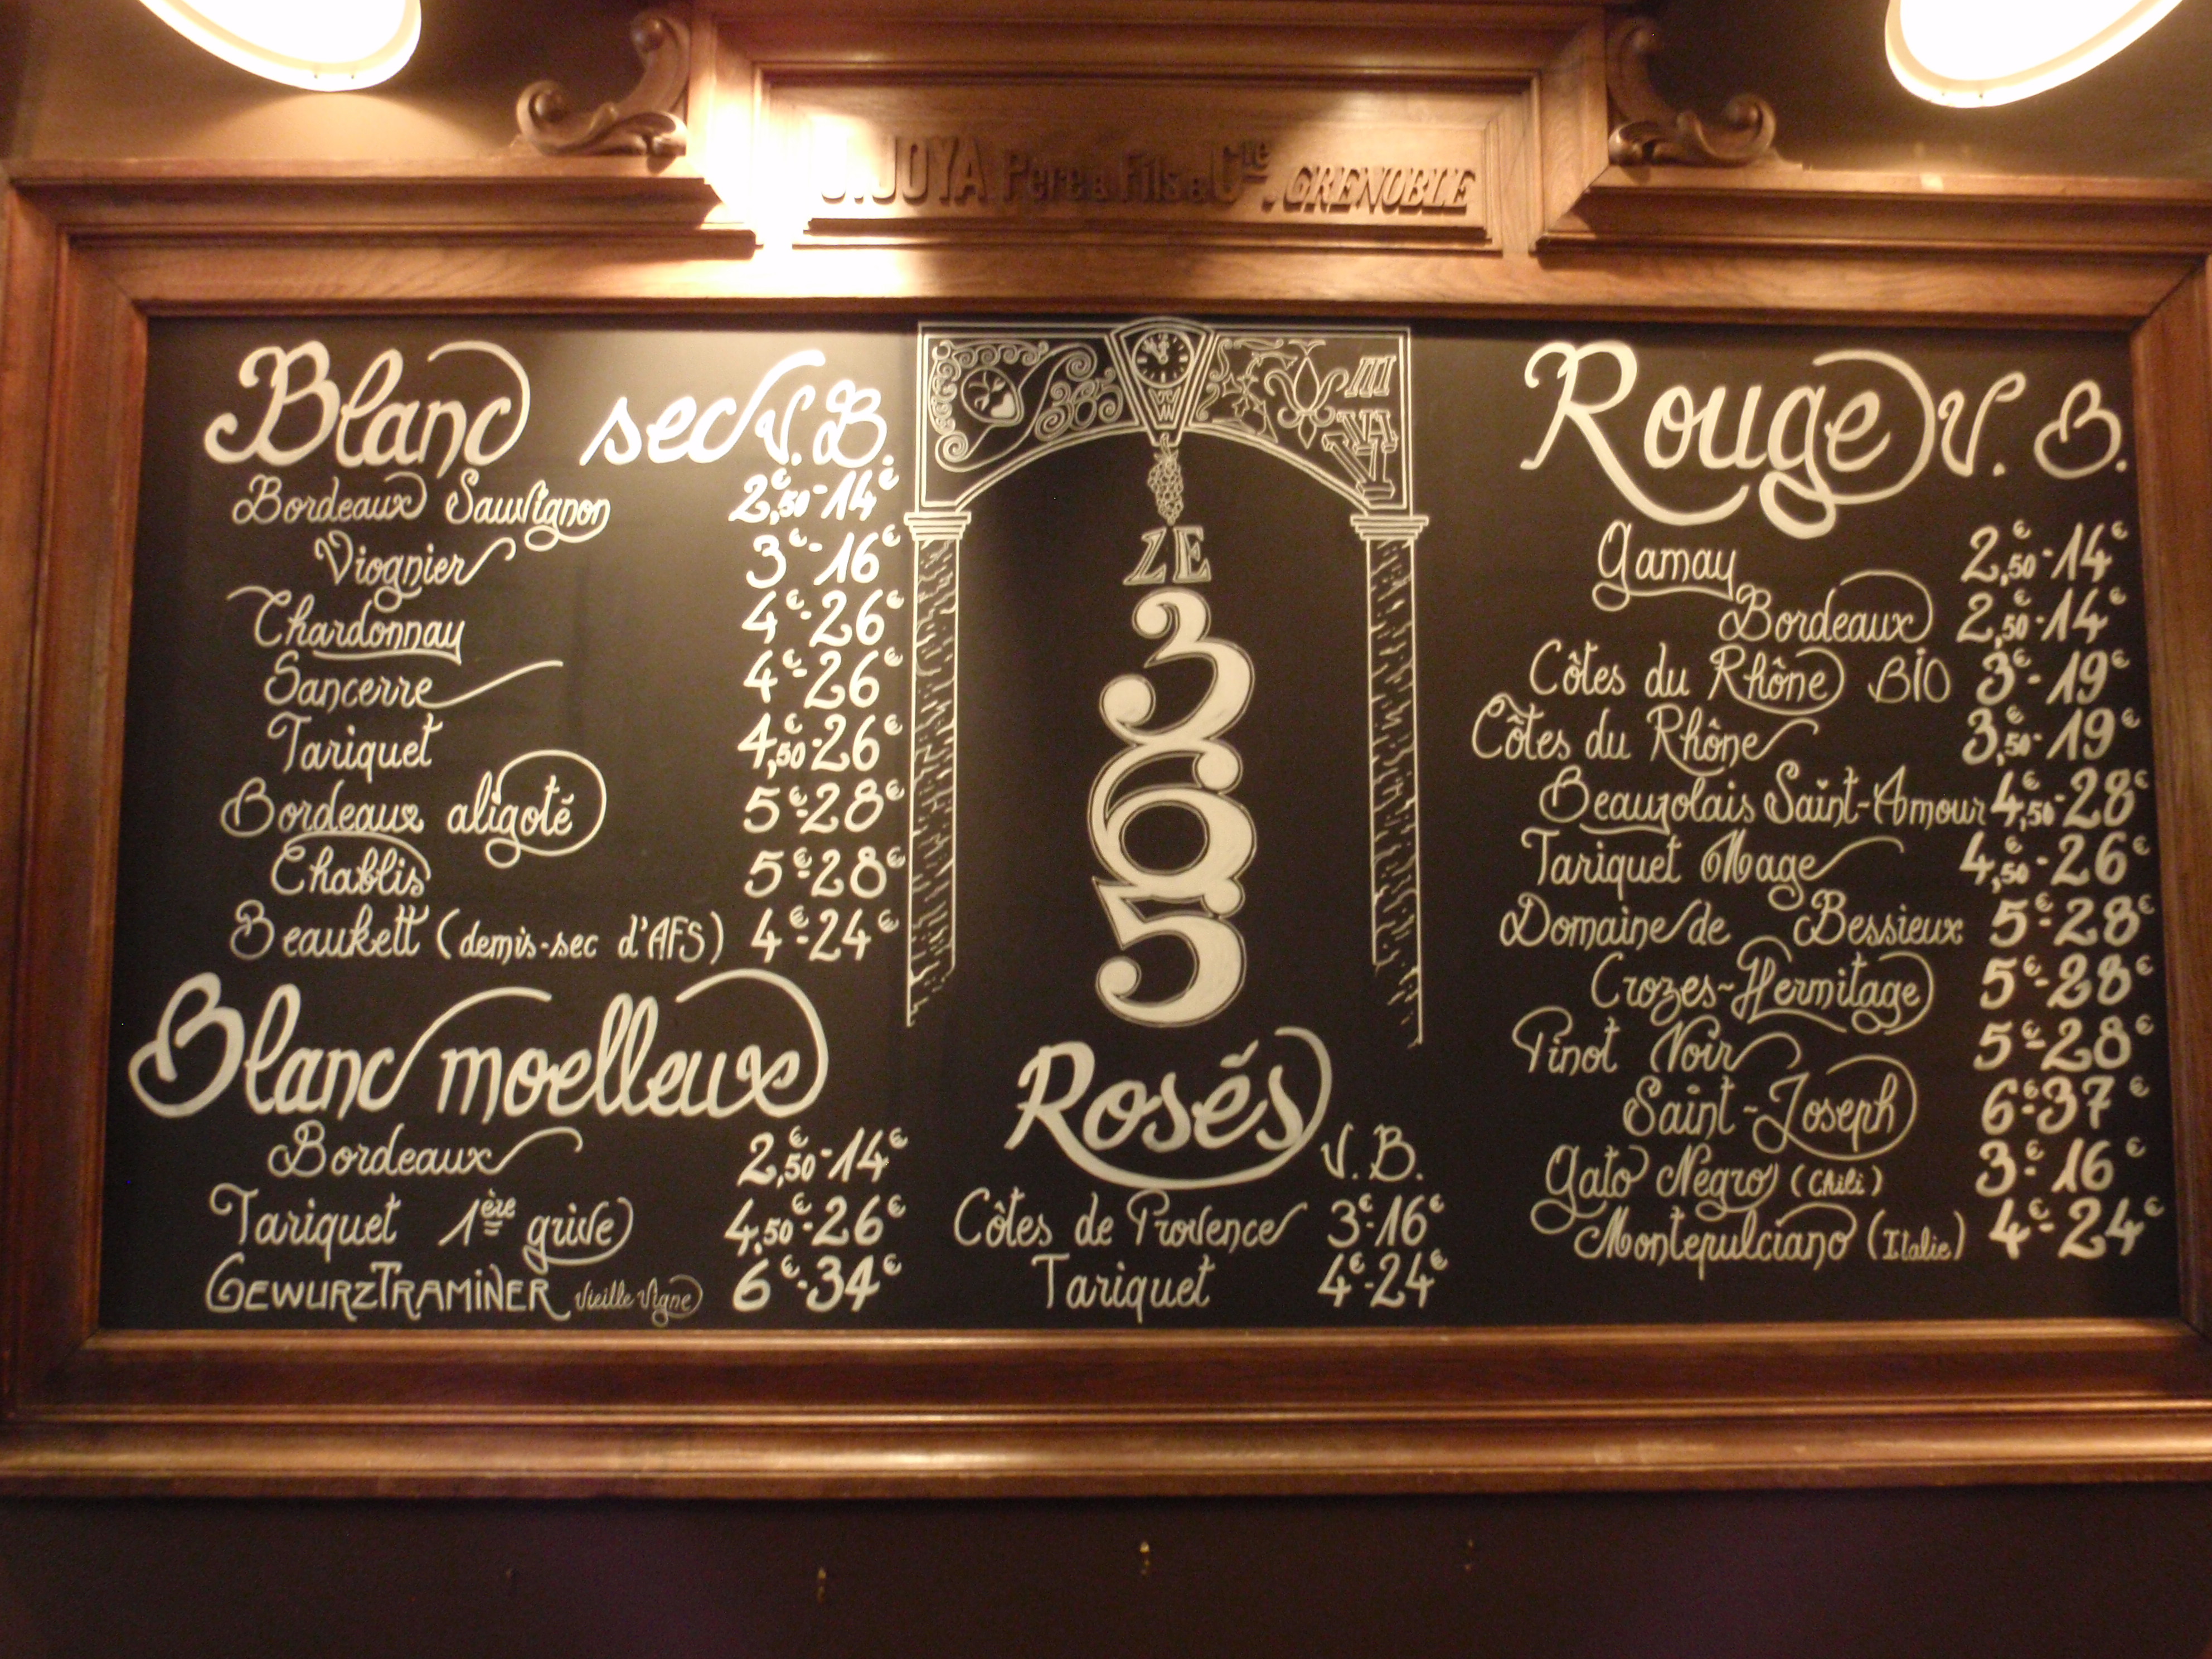 J. JOYA Père & Fils & Cie. GRENOBLE
Blanc sec V. B.
Bordeaux Sauvignon 2,50€-14€
Viognier 3€-16€
Chardonnay 4€-26€
Sancerre 4€-26€
Tariquet 4,50€-26€
Bordeaux aligoté 5€-28€
Chablis 5€-28€
Beaukett (demis-sec d'AFS) 4€-24€
Blanc moelleux
Bordeaux 2,50€-14€
Tariquet 1ère grive 4,50€-26€
GEWURZTRAMINER Vieille Vigne 6€-34€
ZE
365
Rosés
V. B.
Côtes de Provence 3€-16€
Tariquet 4€-24€
Rouge V. B.
Gamay 2,50€-14€
Bordeaux 2,50€-14€
Côtes du Rhône BIO 3€-19€
Côtes du Rhône 3,50€-19€
Beaujolais Saint-Amour 4,50€-28€
Tariquet Mage 4,50€-26€
Domaine de Bessieux 5€-28€
Crozes-Hermitage 5€-28€
Pinot Noir 5€-28€
Saint-Joseph 6€-37€
Gato Negro (Chili) 3€-16€
Montepulciano (Italie) 4€-24€